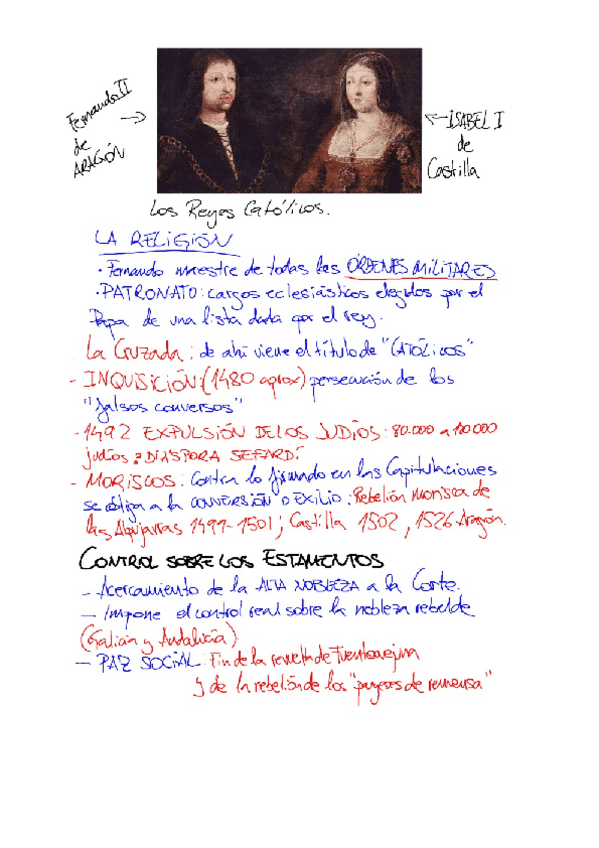 Fernando II
de
ARAGÓN
ISABEL I
de
Castilla
Los Reyes Católicos.
LA RELIGIÓN
· Fernando maestre de todas las ÓRDENES MILITARES
· PATRONATO: cargos eclesiásticos elegidos por el
Papa de una lista dada por el rey.
La Cruzada: de ahí viene el título de "CATÓLICOS"
- INQUISICIÓN: (1480 aprox) persecución de los
"falsos conversos"
- 1492 EXPULSIÓN DE LOS JUDÍOS: 80.000 a 100.000
judíos: DIÁSPORA SEFARDÍ
- MORISCOS: Contra lo firmado en las Capitulaciones
se obliga a la CONVERSIÓN O EXILIO. Rebelión morisca de
las Alpujarras 1499-1501; Castilla 1502, 1526 Aragón.
CONTROL SOBRE LOS ESTAMENTOS
- Acercamiento de la ALTA NOBLEZA a la Corte.
- Impone el control real sobre la nobleza rebelde
(Galicia y Andalucía)
- PAZ SOCIAL: Fin de la revuelta de Fuenteovejuna
y de la rebelión de los "payeses de remensa"